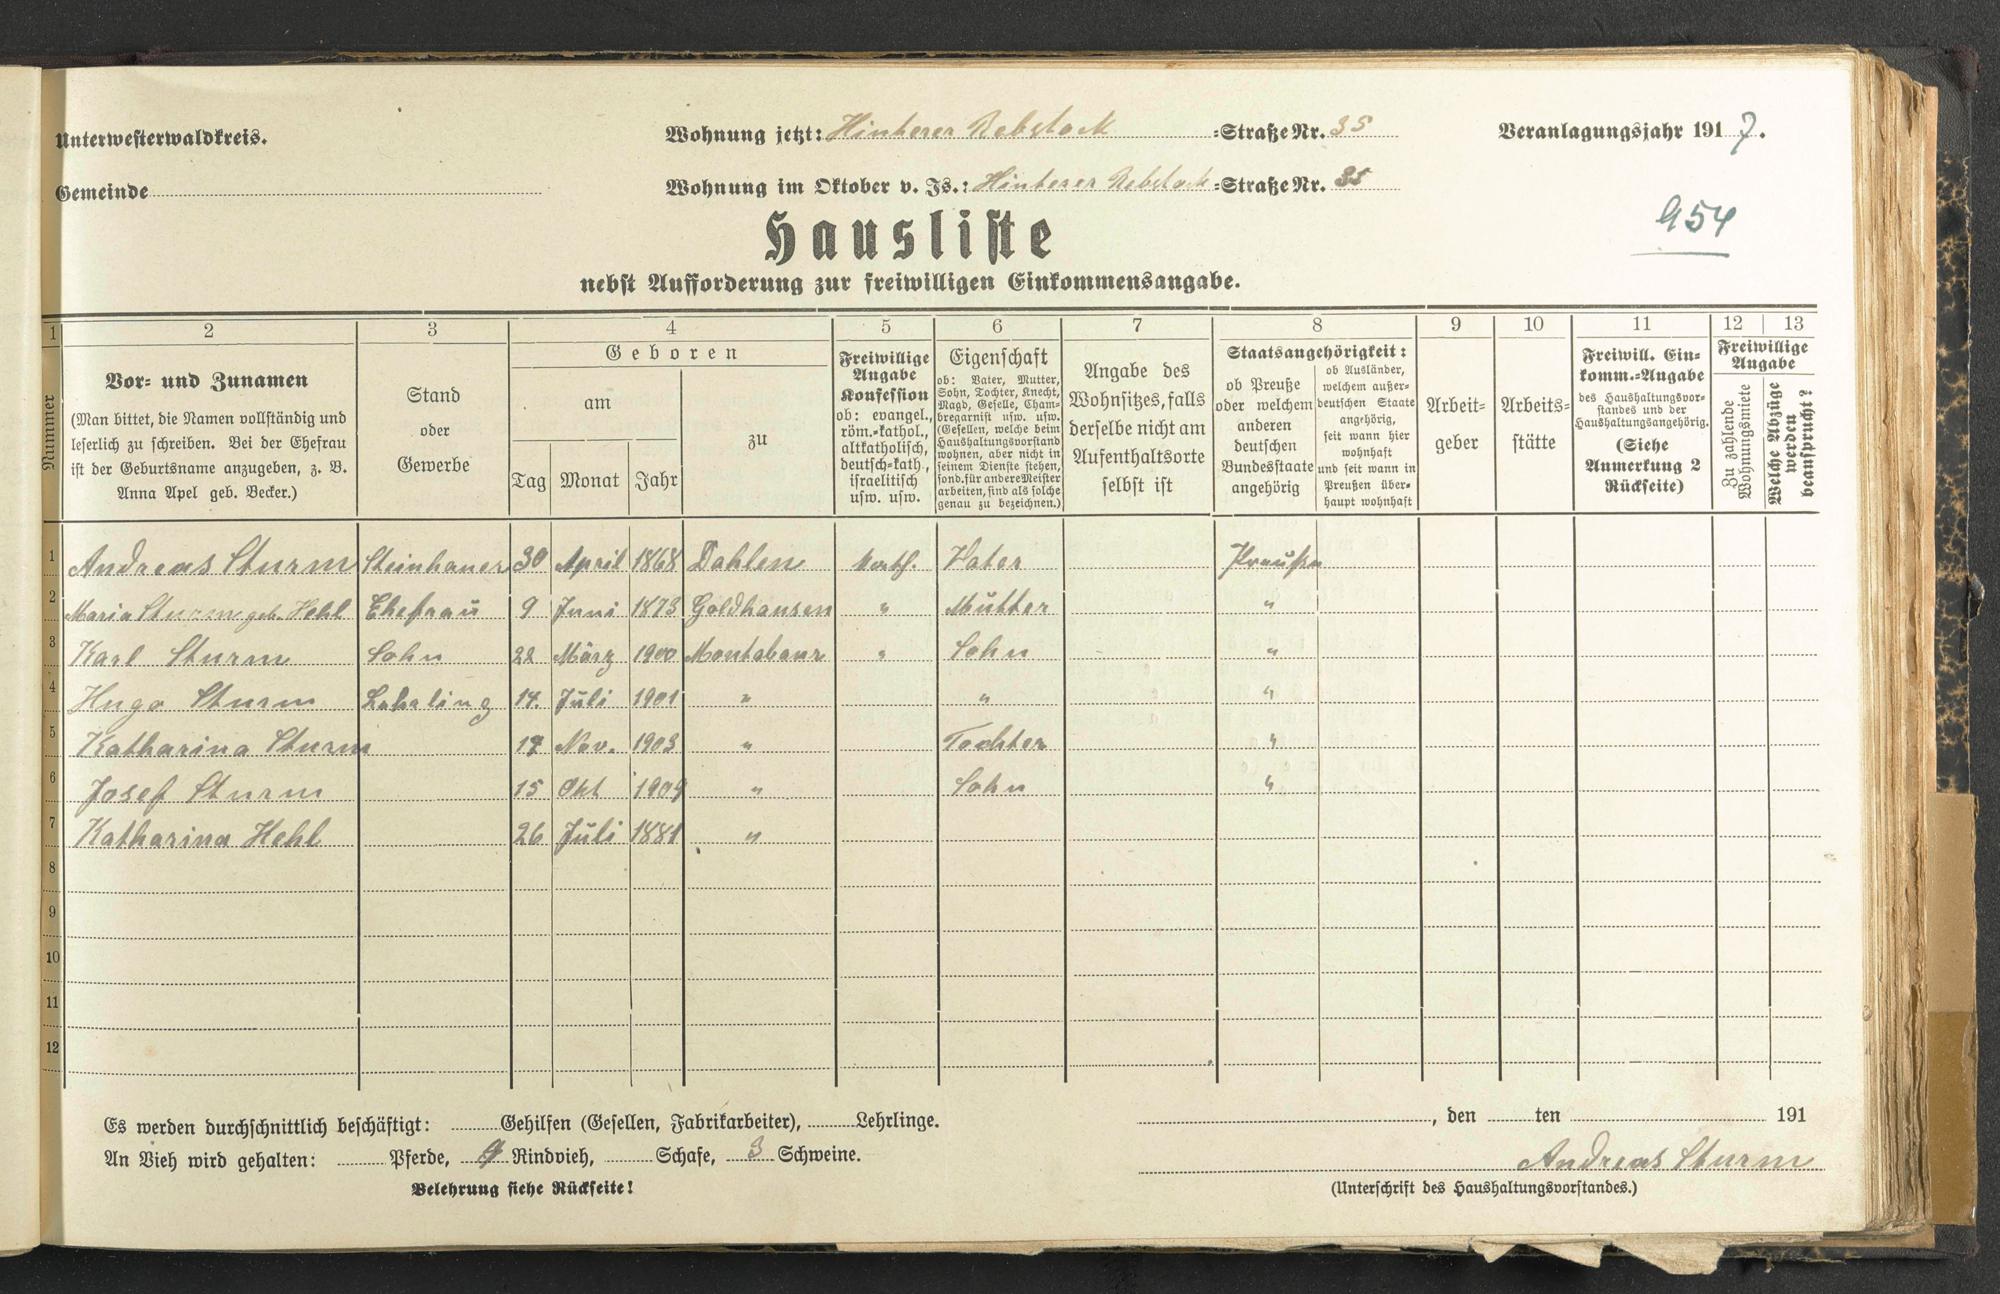 Unterwesterwaldkreis. Wohnung jetzt: Hinterer Rebstock -Straße Nr. 35 Veranlagungsjahr 1917.
Gemeinde Wohnung im Oktober v. Js.: Hinterer Rebstock -Straße Nr. 35
954
Hausliste
nebst Aufforderung zur freiwilligen Einkommensangabe.
1 2 3 4 5 6 7 8 9 10 11 12 13
Nummer
Vor- und Zunamen
(Man bittet, die Namen vollständig und
leserlich zu schreiben. Bei der Ehefrau
ist der Geburtsname anzugeben, z. B.
Anna Apel geb. Becker.)
Stand
oder
Gewerbe
Geboren
am
Tag Monat Jahr
zu
Freiwillige
Angabe
Konfession
ob: evangel.,
röm.-kathol.,
altkatholisch,
deutsch-kath.,
israelitisch
usw. usw.
Eigenschaft
ob: Vater, Mutter,
Sohn, Tochter, Knecht,
Magd, Geselle, Cham-
bregarnist usw. usw.
(Gesellen, welche beim
Haushaltungsvorstand
wohnen, aber nicht in
seinem Dienste stehen,
sond. für andere Meister
arbeiten, sind als solche
genau zu bezeichnen.)
Angabe des
Wohnsitzes, falls
derselbe nicht am
Aufenthaltsorte
selbst ist
Staatsangehörigkeit:
ob Preuße
oder welchem
anderen
deutschen
Bundesstaate
angehörig
ob Ausländer,
welchem außer-
deutschen Staate
angehörig,
seit wann hier
wohnhaft
und seit wann in
Preußen über-
haupt wohnhaft
Arbeit-
geber
Arbeits-
stätte
Freiwill. Ein-
komm.-Angabe
des Haushaltungsvor-
standes und der
Haushaltungsangehörig.
(Siehe
Anmerkung 2
Rückseite)
Freiwillige
Angabe
Zu zahlende
Wohnungsmiete
Welche Abzüge
werden
beansprucht?
1 Andreas Sturm Steinhauer 30 April 1868 Dahlen Kath. Vater Preußen
2 Maria Sturm geb. Hehl Ehefrau 9 Juni 1873 Goldhausen " Mutter "
3 Karl Sturm Sohn 22 März 1900 Montabaur " Sohn "
4 Hugo Sturm Lehrling 14. Juli 1901 " " "
5 Katharina Sturm 17 Nov. 1903 " Tochter "
6 Josef Sturm 15 Okt 1909 " Sohn "
7 Katharina Hehl 26 Juli 1881 "
8
9
10
11
12
Es werden durchschnittlich beschäftigt: Gehilfen (Gesellen, Fabrikarbeiter), Lehrlinge.
An Vieh wird gehalten: Pferde, Rindvieh, Schafe, 3 Schweine.
Belehrung siehe Rückseite!
, den ten 191
Andreas Sturm
(Unterschrift des Haushaltungsvorstandes.)